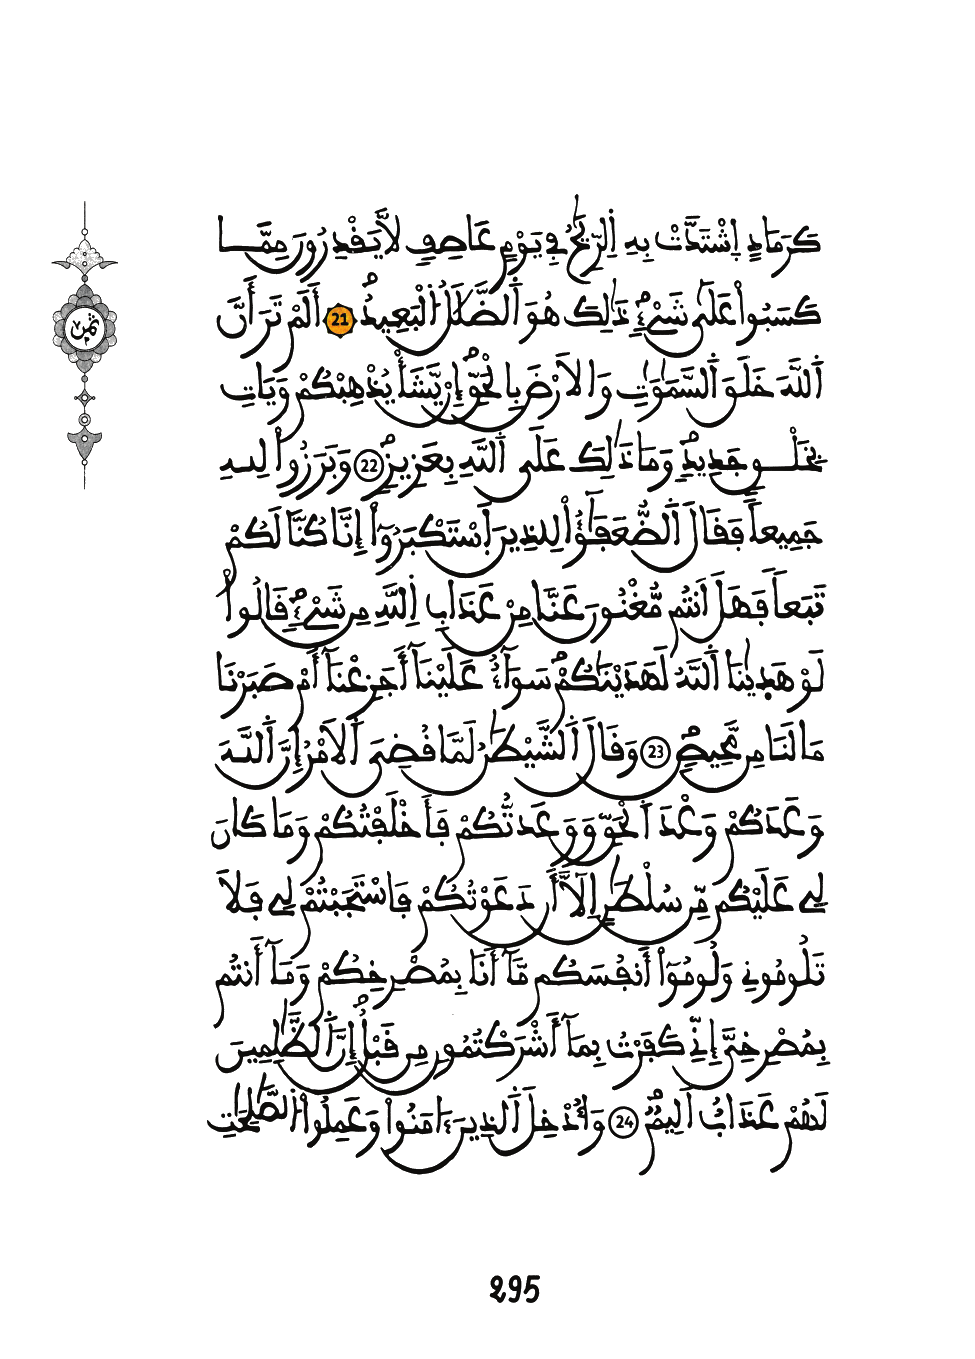 كَرَمَادٍ اِشْتَدَّتْ بِهِ اِ۬لرِّيَٰحُ فِے يَوْمٍ عَاصِفٖ لَّا يَقْدِرُونَ مِمَّا
كَسَبُواْ عَلَىٰ شَےْءٖۖ ذَٰلِكَ هُوَ اَ۬لضَّلَٰلُ اُ۬لْبَعِيدُۖ 21 أَلَمْ تَرَ أَنَّ
اَ۬للَّهَ خَلَقَ اَ۬لسَّمَٰوَٰتِ وَالَارْضَ بِالْحَقِّۖ إِنْ يَّشَأْ يُذْهِبْكُمْ وَيَاتِ
بِخَلْقٖ جَدِيدٖۖ وَمَا ذَٰلِكَ عَلَى اَ۬للَّهِ بِعَزِيزٖۖ 22 وَبَرَزُواْ لِلهِ
جَمِيعاٗ فَقَالَ اَ۬لضُّعَفَٰٓؤُاْ لِلذِينَ اَ۪سْتَكْبَرُوٓاْ إِنَّا كُنَّا لَكُمْ
تَبَعاٗ فَهَلَ اَنتُم مُّغْنُونَ عَنَّا مِنْ عَذَابِ اِ۬للَّهِ مِن شَےْءٖۖ قَالُواْ
لَوْ هَد۪يٰنَا اَ۬للَّهُ لَهَدَيْنَٰكُمْۖ سَوَآءٌ عَلَيْنَآ أَجَزِعْنَآ أَمْ صَبَرْنَا
مَا لَنَا مِن مَّحِيصٖۖ 23 وَقَالَ اَ۬لشَّيْطَٰنُ لَمَّا قُضِيَ اَ۬لَامْرُ إِنَّ اَ۬للَّهَ
وَعَدَكُمْ وَعْدَ اَ۬لْحَقِّ وَوَعَدتُّكُمْ فَأَخْلَفْتُكُمْ وَمَا كَانَ
لِے عَلَيْكُم مِّن سُلْطَٰنٍ اِلَّآ أَن دَعَوْتُكُمْ فَاسْتَجَبْتُمْ لِے فَلَا
تَلُومُونِے وَلُومُوٓاْ أَنفُسَكُم مَّآ أَنَا بِمُصْرِخِكُمْ وَمَآ أَنتُم
بِمُصْرِخِيَّ إِنِّے كَفَرْتُ بِمَآ أَشْرَكْتُمُونِ مِن قَبْلُۖ إِنَّ اَ۬لظَّٰلِمِينَ
لَهُمْ عَذَابٌ اَلِيمٞۖ 24 وَأُدْخِلَ اَ۬لذِينَ ءَامَنُواْ وَعَمِلُواْ اُ۬لصَّٰلِحَٰتِ
ثمن
295